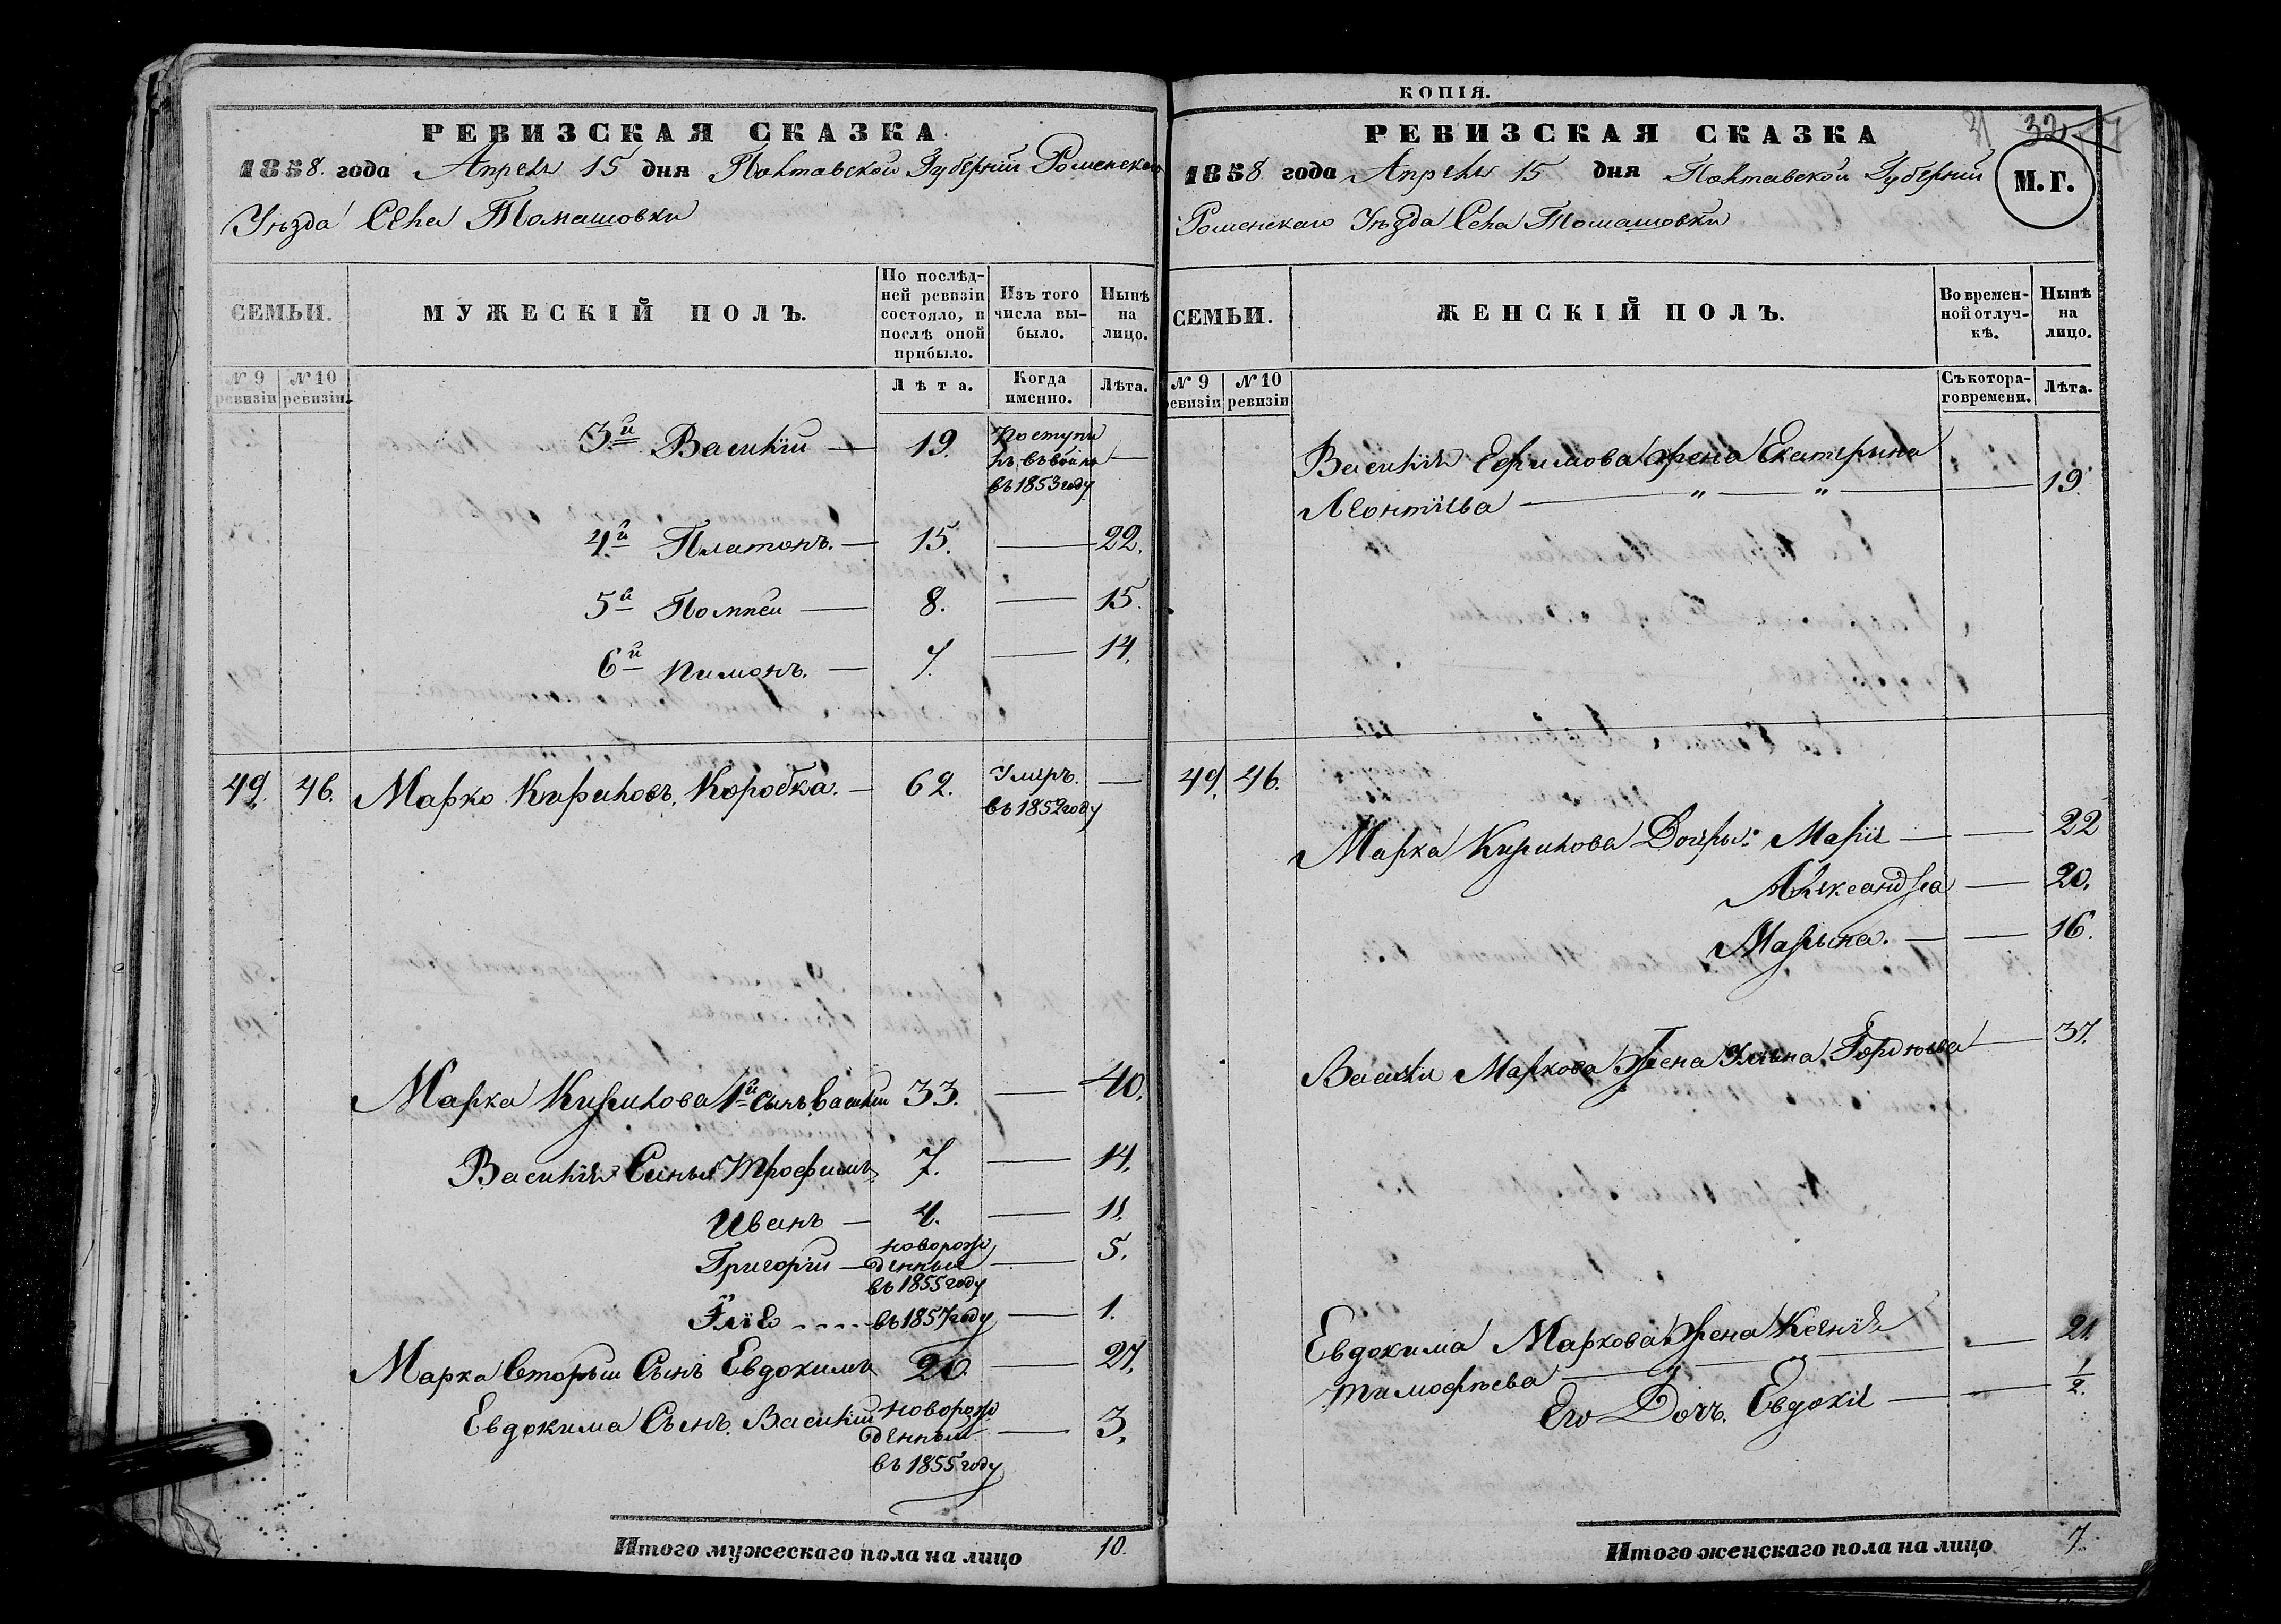 РЕВИЗСКАЯ СКАЗКА
1858. года Апреля 15 дня Полтавской Губерніи Роменскаго
Уѣзда Села Томашовки
СЕМЬИ.
МУЖЕСКІЙ ПОЛЪ.
По послѣд-
ней ревизіи
состояло, и
послѣ оной
прибыло.
Изъ того
числа вы-
было.
Нынѣ
на
лицо.
№ 9
ревизіи
№ 10
ревизіи.
Лѣта.
Когда
именно.
Лѣта.
3й Василій — 19. Поступи
лъ въ
въ 1853 году
4й Платонъ. — 15. — 22.
5й Помпей — 8. — 15.
6й Пимонъ. — 7. — 14.
49. 46. Марко Кириловъ Коробка. — 62. Умеръ. —
въ 1852 году
Марка Кирилова 1й сынъ Василій 33. — 40.
Василія Сыныя Трофимъ 7. — 14.
Иванъ — 4. — 11.
Григорій — новорож
денный — 5.
въ 1855 году
Илія .... въ 1857 году — 1.
Марка вторый Сынъ Евдокимъ 20. — 27.
Евдокима Сынъ Василій новорож
денный — 3.
въ 1855 году
Итого мужескаго пола на лицо 10.
КОПІЯ.
РЕВИЗСКАЯ СКАЗКА
32
М.Г.
1858 года Апреля 15 дня Полтавской Губерніи
Роменскаго Уѣзда Села Томашовки
СЕМЬИ.
ЖЕНСКІЙ ПОЛЪ.
Во времен-
ной отлуч-
кѣ.
Нынѣ
на
лицо.
№ 9
ревизіи
№ 10
ревизіи
Съ котора-
го времени.
Лѣта.
Василія Ефимова жена Екатерына
Леонтіева — " — " — 19.
49. 46.
Марка Кирилова Дочеры: Марія — — 22
Александра — 20.
Марына. — — 16.
Василія Маркова жена Уліяна Гордѣева — 37.
Евдокима Маркова жена Ксенія
Тимофѣева — " — — 21.
Его Дочъ. Евдокія — — 1/2.
Итого женскаго пола на лицо 7.